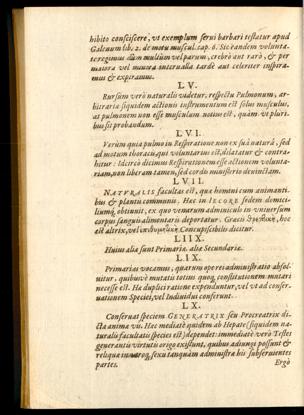 hibito consciscere, vt exemplum serui barbari testatur apud
Galenum lib. 2. de motu muscul. cap. 6. Sic eandem volunta-
te regimus dum multum vel parum, crebrò aut rarò, & per
maiora vel minora interualla tardè aut celeriter inspira-
mus & expiramus.
LV.
Rursum verò naturalis videtur, respectu Pulmonum, ar-
bitraria siquidem actionis instrumentum est solus musculus,
at pulmonem non esse musculum notius est, quàm vt pluri-
bus sit probandum.
LVI.
Verùm quia pulmo in Respiratione non ex suâ naturâ, sed
ad motum thoracis, qui voluntarius est, dilatatur & contra-
hitur: Idcircò dicimus Respirationem esse actionem volunta-
riam, non liberam tamen, sed cordis ministerio deuinctam.
LVII.
NATVRALIS facultas est, quæ homini cum animanti-
bus & plantis communis. Haec in IECORE sedem domici-
liumq; obtinuit, ex quo venarum adminiculo in vniuersum
corpus sanguis alimentaris deportatur. Græcis θρεπτικὴ, hoc
est altrix, vel ἐπιθυμητικὴ Concupiscibilis dicitur.
LIIX.
Huius aliæ sunt Primariæ, aliæ Secundariæ.
LIX.
Primarias vocamus, quarum opere administratio absol-
uitur, quibusvè mutatis totius quoq; constitutionem mutari
necesse est. Hæ duplici ratione expenduntur, vel vt ad conser-
uationem Speciei, vel Indiuidui conferunt.
LX.
Conseruat speciem GENERATRIX seu Procreatrix di-
cta anima vis. Haec mediatè quidem ab Hepate (siquidem na-
turalis facultatis species est) dependet: immediatè verò Testes
generantis virtutis origo existunt, quibus adiungi possunt &
reliqua in utroq; sexu tanquam administra his subseruientes
partes.
Ergò